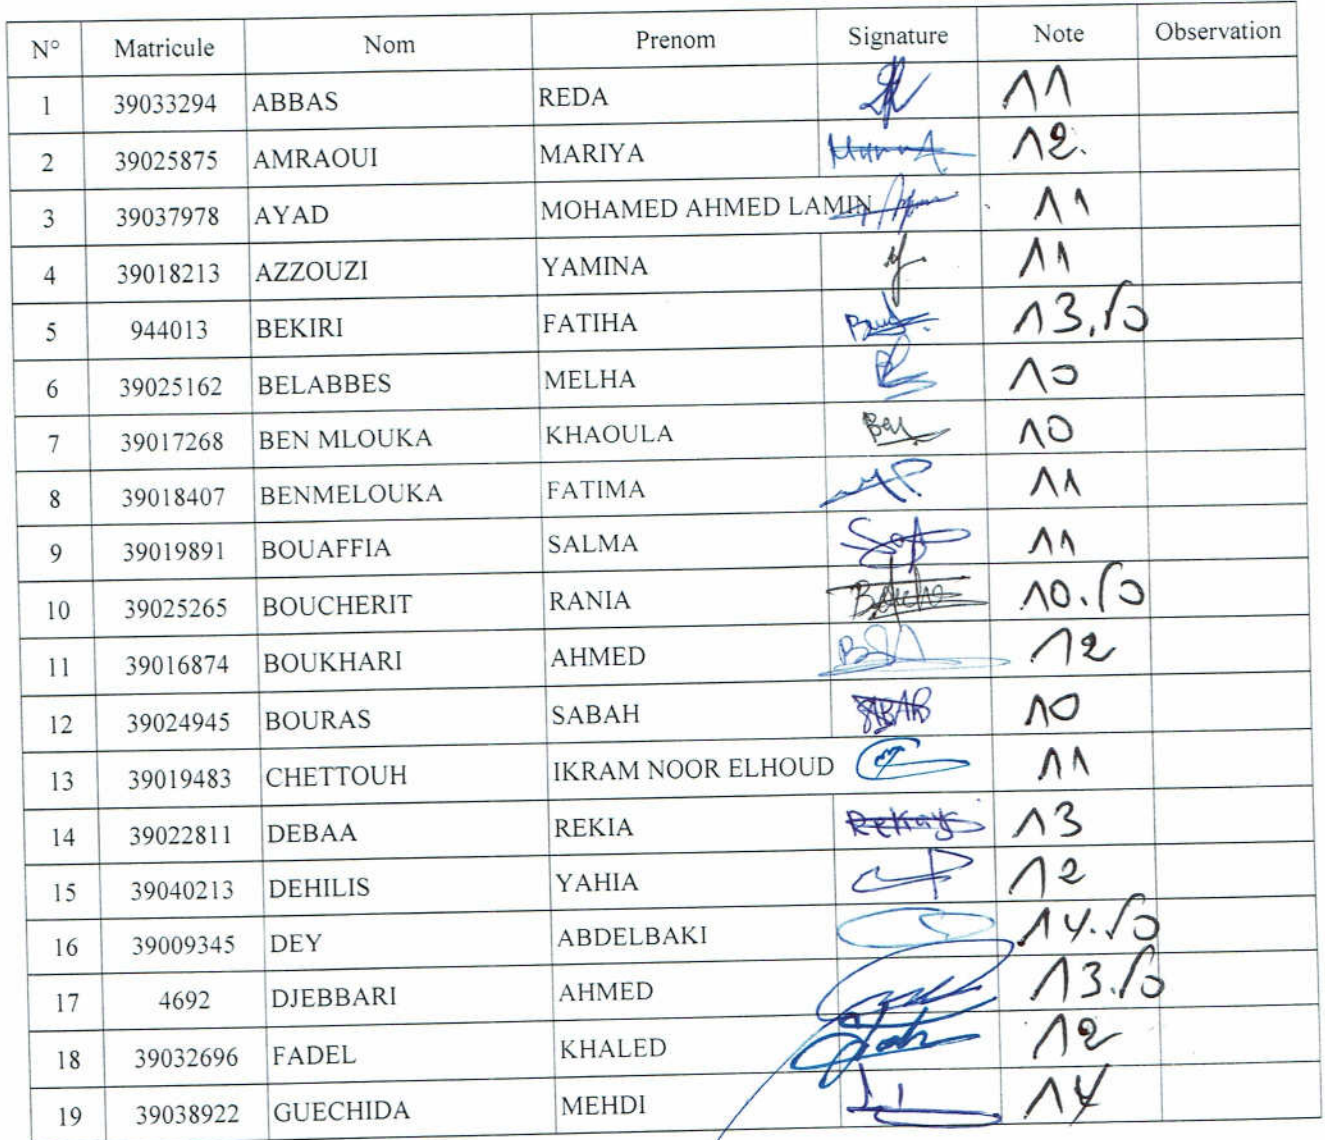 N° Matricule Nom Prenom Signature Note Observation
1 39033294 ABBAS REDA 11
2 39025875 AMRAOUI MARIYA 12
3 39037978 AYAD MOHAMED AHMED LAMIN 11
4 39018213 AZZOUZI YAMINA 11
5 944013 BEKIRI FATIHA 13.50
6 39025162 BELABBES MELHA 10
7 39017268 BEN MLOUKA KHAOULA 10
8 39018407 BENMELOUKA FATIMA 11
9 39019891 BOUAFFIA SALMA 11
10 39025265 BOUCHERIT RANIA 10.50
11 39016874 BOUKHARI AHMED 12
12 39024945 BOURAS SABAH 10
13 39019483 CHETTOUH IKRAM NOOR ELHOUD 11
14 39022811 DEBAA REKIA 13
15 39040213 DEHILIS YAHIA 12
16 39009345 DEY ABDELBAKI 14.50
17 4692 DJEBBARI AHMED 13.50
18 39032696 FADEL KHALED 12
19 39038922 GUECHIDA MEHDI 14